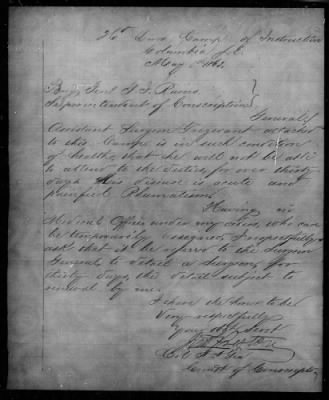 Hd Qrs Camp of Instruction
Columbia S.C.
May 1863.
Brig Genl G. J. Rains
Superintendent of Conscription
General
Assistant Surgeon attached
to this Camp is in such condition
of health, that he will not be able
to attend to the duties for over thirty
days this disease is acute and
painful Rheumatism.
Having no
Medical Officer under my orders, who can
be temporarily assigned, I respectfully
ask that it be referred to the Surgeon
General to detail a Surgeon for
thirty days, this detail subject to
renewal by me.
I have the honor to be
Very respectfully
Your obt Servt
Preston
Col
Comdt of Conscripts